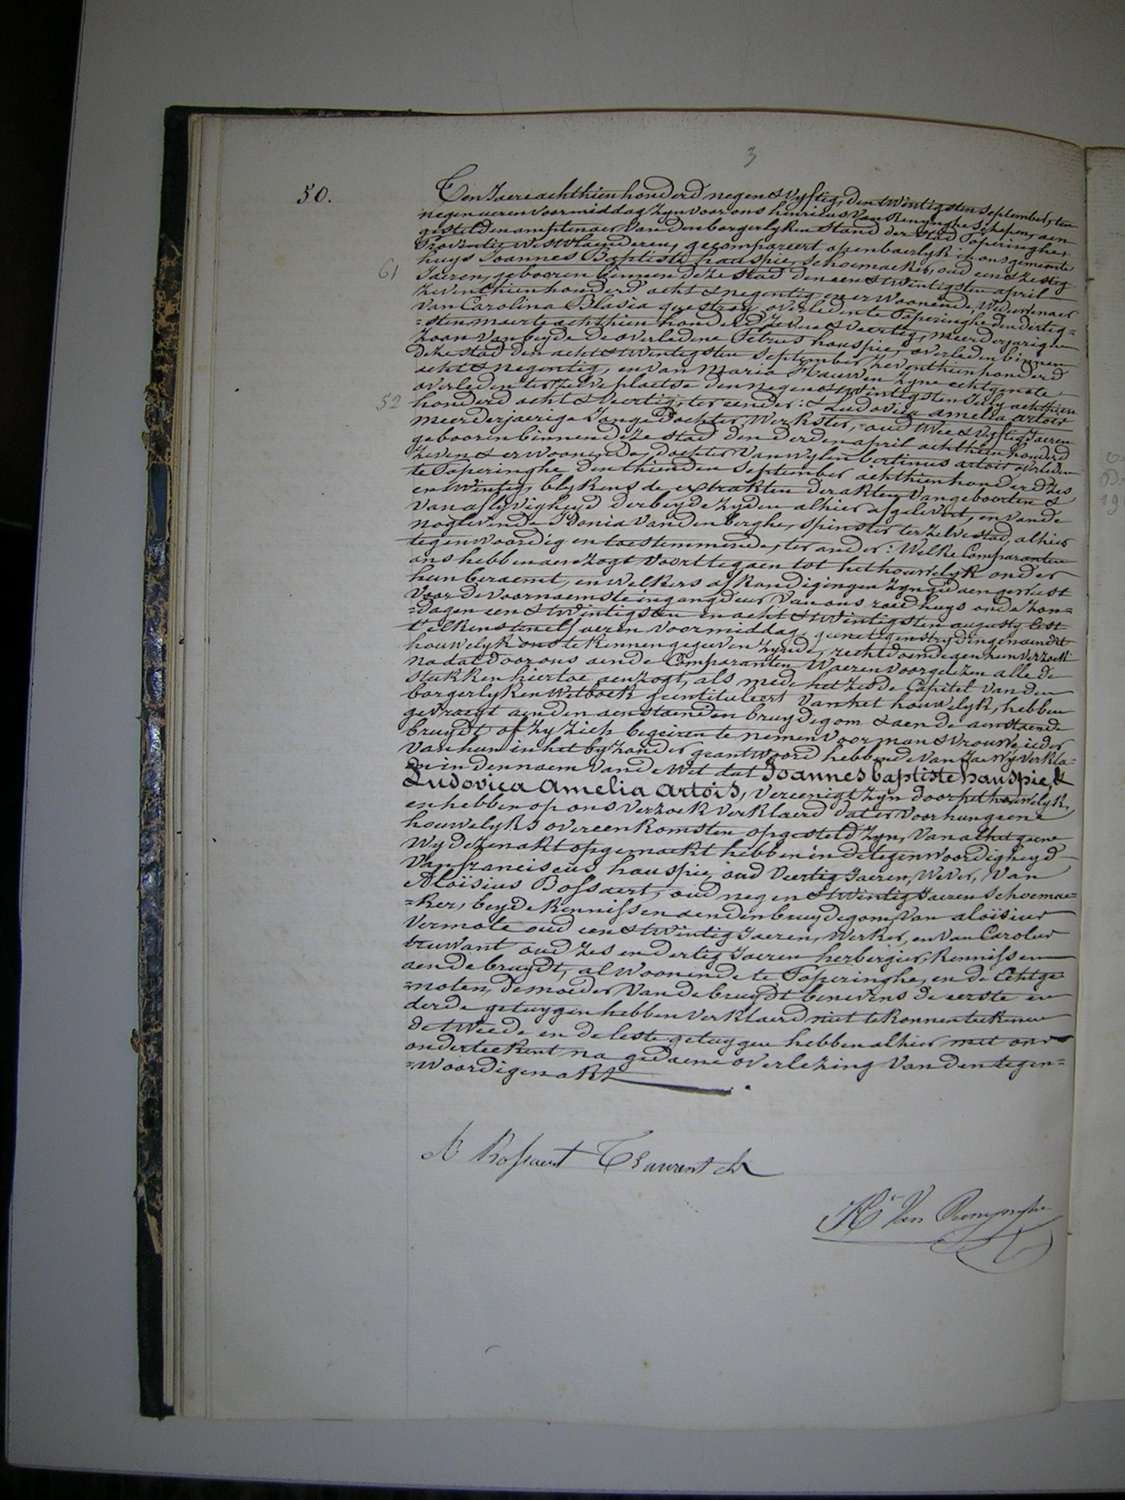 3
50.
Ten Jaere achthien honderd negen & vyftig, den twintigsten september, ten
negen uren voormiddag zyn voor ons henricus Van Renynghe schepen, aen
gestelden amptenaer van den borgerlyken stand der stad Poperinghe,
Provintie Westvlaenderen, gecompareert openbaerlyk in ons gemeente
huys Joannes Baptiste hauspie, schoenmaker, oud een & zestig
61
Jaeren, gebooren binnen deze stad den een & twintigsten april
zeventhien honderd acht & negentig, en er woonende, Weduwenaer
van Carolina Blavia questroy overleden te Poperinghe den dertig=
=sten maerte achthien honderd zeven & veertig, meerderjarigen
zoon van beyde de overledene Petrus hauspie, overleden binnen
deze stad den acht & twintigsten september zeventhien honderd
acht & negentig, en van Maria Kauwen zyne echtgenote
overleden ter zelve plaetse den negen & twintigsten July achthien
52
honderd acht & veertig, ter eender: & Ludovica amelia artois
meerderjaerige Jonge Dochter, Werkster, oud twee & vyftig Jaeren
gebooren binnen deze stad den derden april achthien honderd
zeven & er woonende, dochter van wylen bertinus artois overleden
te Poperinghe den thienden september achthien honderd zes
en twintig, blykens de extrakten der akten van geboorten &
van aflyvigheyd der beyde zyden alhier afgelevert, en van de
nog levende Idonia Vandenberghe, spinster ter zelve stad, alhier
tegenwoordig en toestemmende, ter ander: Welke Comparanten
ons hebben aenzogt voort te gaen tot het houwelyk onder
hun beraemt, en welkers afkondigingen zyn gedaen geweest
voor de voornaemste ingangdeur van ons raedhuys onde zon=
=dagen een & twintigsten en acht & twintigsten augusty lest
t'elkens ten elf uren voormiddag, geene tegenstrydingen aen dit
houwelyk ons te kennen gegeven zynde, rechtdoende aen hun verzoek
na dat door ons aen de Comparanten waeren voorgelezen alle de
stukken hiertoe aenzogt, als mede het zesde Capitel van den
borgerlyken Wetboek geintituleert van het houwelyk, hebben
gevraegt aen den aenstaenden bruydegom & aen de aenstaende
bruydt of zy zich begeiren te nemen voor man & vrouw, ieder
van hun in het byzonder geantwoord hebbende van Ja, wy verkla=
=en in den naem van de Wet dat Joannes baptiste hauspie, &
Ludovica Amelia Artois, vereenigt zyn door het houwelyk,
en hebben op ons verzoek verklaerd dat er voor hun geene
houwelyks overeenkomsten opgesteld zyn, van al het geene
wy dezen akt opgemaekt hebben in de tegenwoordigheyd
van franciscus hauspie, oud veertig Jaeren, Wever, van
Aloïsius Bossaert, oud negen & twintig Jaeren schoenmae=
=ker, beyde kennissen aen den bruydegom, van aloïsius
Vermote oud een & twintig Jaeren, Werker, en van Carolus
bruwant oud zes en dertig Jaeren herbergier, kennissen
aen de bruydt, al woonende te Poperinghe, en de Echtge=
=noten, de moeder van de bruydt benevens de eerste en
derde getuygen hebben verklaerd niet te konnen teekenen
de tweede en de leste getuygen hebben alhier met ons
onderteekent na gedaene overlezing van den tegen=
=woordigen akt.
A Bossaert
Hri Van Renynghe